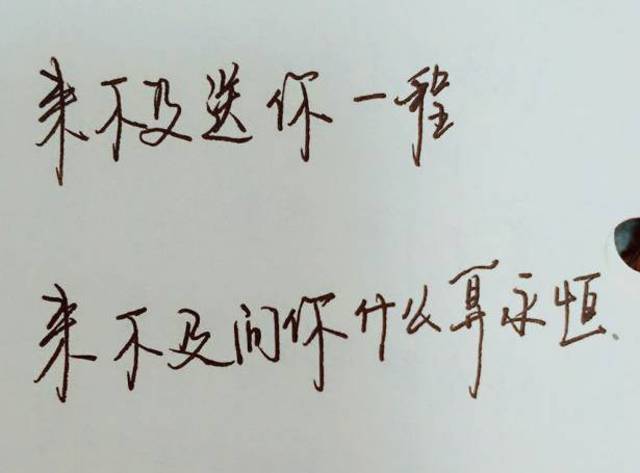 来不及送你一程
来不及问你什么算永恒.